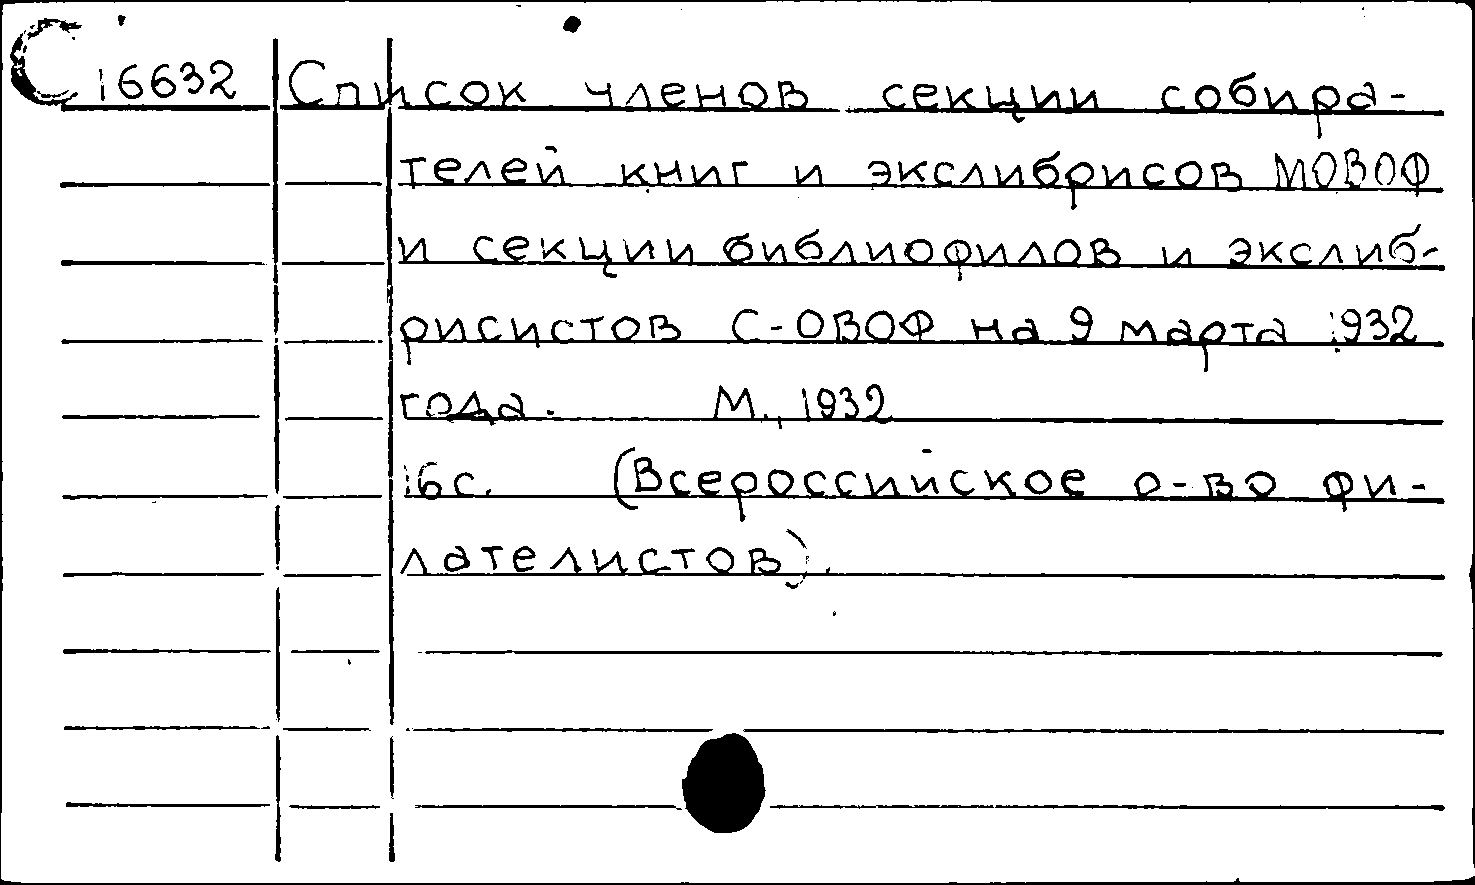 С 16632 Список членов секции собира-
телей книг и экслибрисов МОВОФ
и секции библиофилов и экслиб-
рисистов С-ОВОФ на 9 марта 1932
года. М., 1932
16с. (Всероссийское о-во фи-
лателистов).